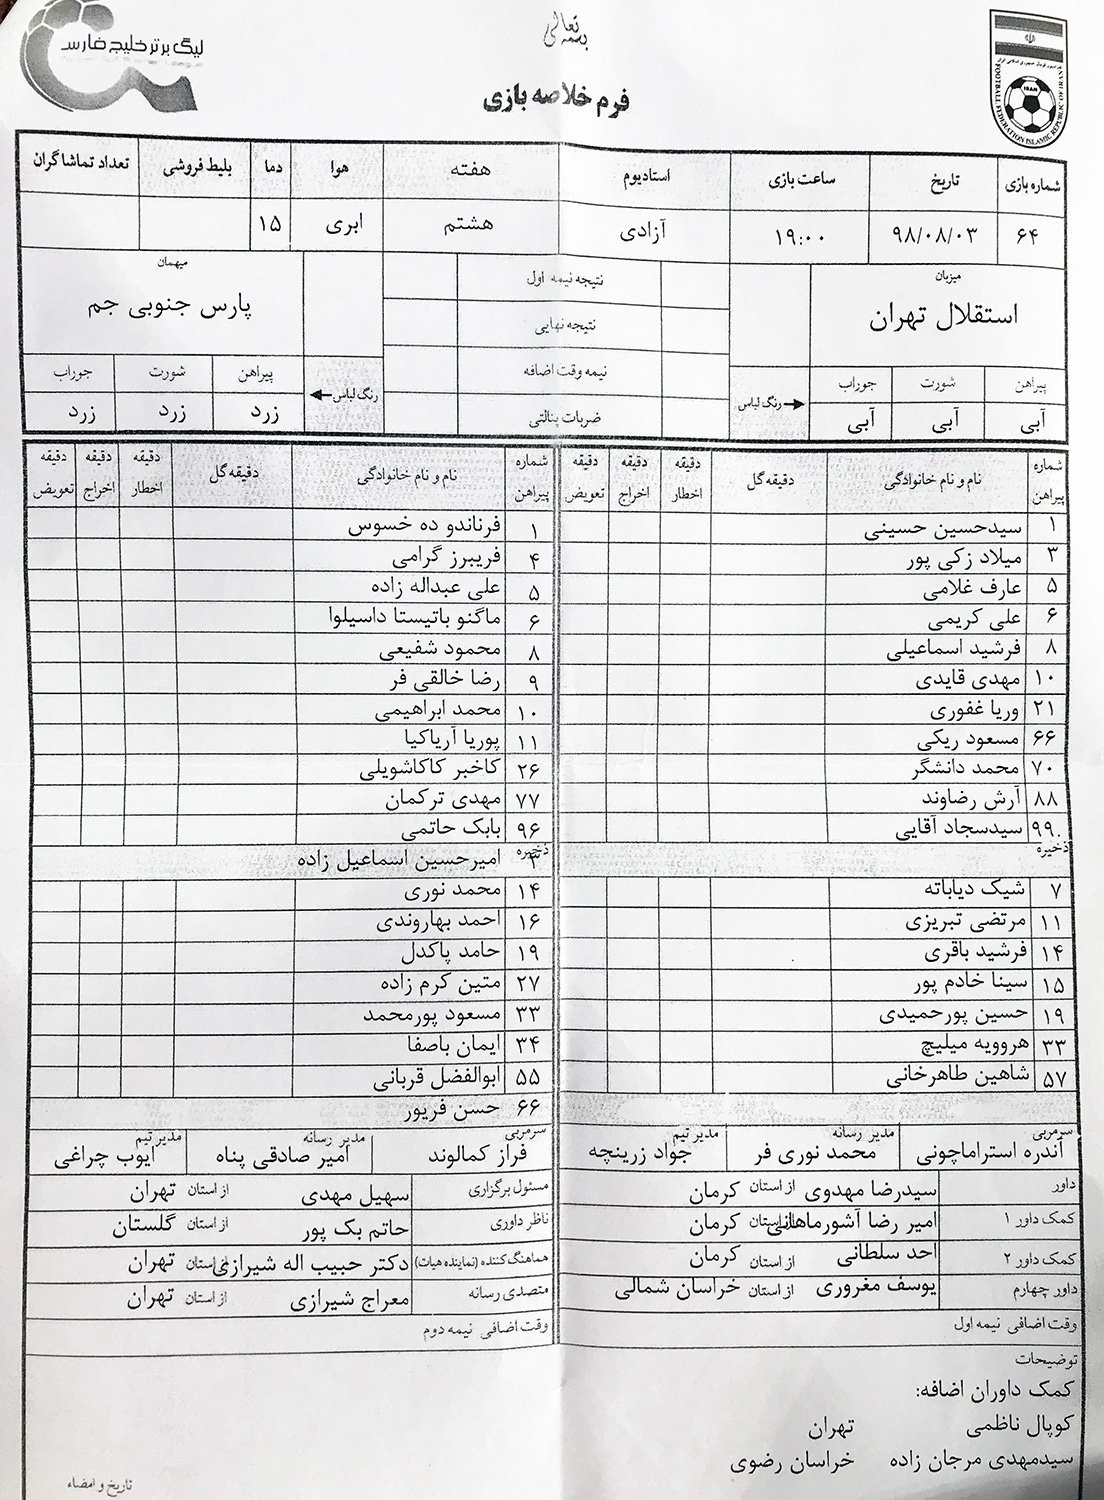 بسمه تعالی
لیگ برتر خلیج فارس
FOOTBALL FEDERATION ISLAMIC REPUBLIC OF IRAN
IRAN
فرم خلاصه بازی
شماره بازی تاریخ ساعت بازی استادیوم هفته هوا دما بلیط فروشی تعداد تماشاگران
۶۴ ۹۸/۰۸/۰۳ ۱۹:۰۰ آزادی هشتم ابری ۱۵
میزبان
استقلال تهران
پیراهن شورت جوراب
آبی آبی آبی
رنگ لباس
نتیجه نیمه اول
نتیجه نهایی
نیمه وقت اضافه
ضربات پنالتی
میهمان
پارس جنوبی جم
رنگ لباس
پیراهن شورت جوراب
زرد زرد زرد
شماره پیراهن نام و نام خانوادگی دقیقه گل دقیقه اخطار دقیقه اخراج دقیقه تعویض
۱ سیدحسین حسینی
۳ میلاد زکی پور
۵ عارف غلامی
۶ علی کریمی
۸ فرشید اسماعیلی
۱۰ مهدی قایدی
۲۱ وریا غفوری
۶۶ مسعود ریکی
۷۰ محمد دانشگر
۸۸ آرش رضاوند
۹۹ سیدسجاد آقایی
ذخیره
۷ شیک دیاباته
۱۱ مرتضی تبریزی
۱۴ فرشید باقری
۱۵ سینا خادم پور
۱۹ حسین پورحمیدی
۳۳ هروویه میلیچ
۵۷ شاهین طاهرخانی
شماره پیراهن نام و نام خانوادگی دقیقه گل دقیقه اخطار دقیقه اخراج دقیقه تعویض
۱ فرناندو ده خسوس
۴ فریبرز گرامی
۵ علی عبداله زاده
۶ ماگنو باتیستا داسیلوا
۸ محمود شفیعی
۹ رضا خالقی فر
۱۰ محمد ابراهیمی
۱۱ پوریا آریاکیا
۲۶ کاخبر کاکاشویلی
۷۷ مهدی ترکمان
۹۶ بابک حاتمی
ذخیره
۳ امیرحسین اسماعیل زاده
۱۴ محمد نوری
۱۶ احمد بهاروندی
۱۹ حامد پاکدل
۲۷ متین کرم زاده
۳۳ مسعود پورمحمد
۳۴ ایمان باصفا
۵۵ ابوالفضل قربانی
۶۶ حسن فریور
سرمربی آندره استراماچونی مدیر رسانه محمد نوری فر مدیر تیم جواد زرینچه
سرمربی فراز کمالوند مدیر رسانه امیر صادقی پناه مدیر تیم ایوب چراغی
داور سیدرضا مهدوی از استان کرمان
کمک داور ۱ امیر رضا آشورماهانی از استان کرمان
کمک داور ۲ احد سلطانی از استان کرمان
داور چهارم یوسف مغروری از استان خراسان شمالی
وقت اضافی نیمه اول
مسئول برگزاری سهیل مهدی از استان تهران
ناظر داوری حاتم بک پور از استان گلستان
هماهنگ کننده (نماینده هیات) دکتر حبیب اله شیرازی از استان تهران
متصدی رسانه معراج شیرازی از استان تهران
وقت اضافی نیمه دوم
توضیحات
کمک داوران اضافه:
کوپال ناظمی تهران
سیدمهدی مرجان زاده خراسان رضوی
تاریخ و امضاء